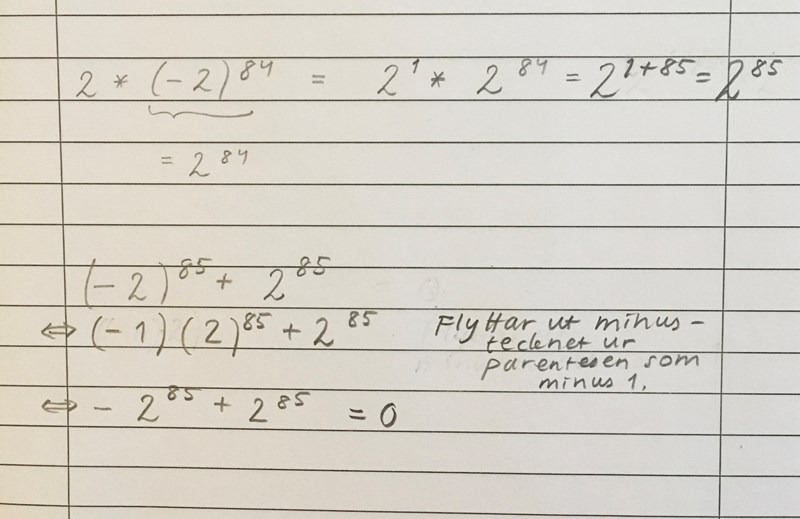 2 * (-2)^84 = 2^1 * 2^84 = 2^1+85 = 2^85
= 2^84
(-2)^85 + 2^85
⇔ (-1)(2)^85 + 2^85 Flyttar ut minus-
tecknet ur
parentesen som
minus 1.
⇔ - 2^85 + 2^85 = 0